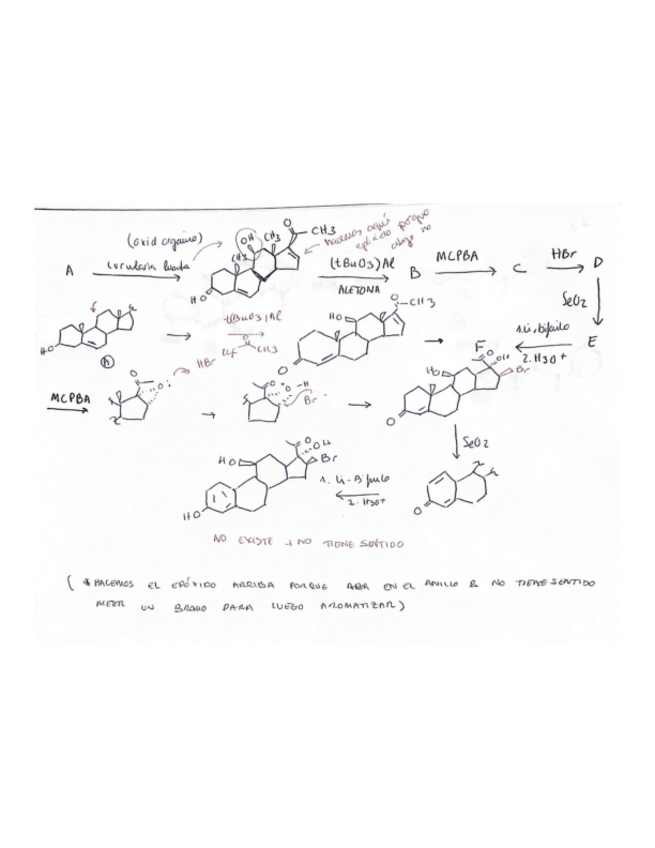 (oxid orgaino)
curvularia lunata
A
OH
CH3
CH3
HO
O
CH3
hacemos aquí
epóxido porque
abajo no
(tBuO3)Al
ACETONA
B
MCPBA
C
HBr
D
SeO2
E
1. Li, bifenilo
2. H3O+
F
HO
A
(tBuO3)Al
O
CH3
HO
O
O
CH3
MCPBA
O
O
HBr
O
O
H
Br
HO
O
O
OH
Br
SeO2
O
HO
HO
O
OH
Br
1. Li-Bifenilo
2. H3O+
NO EXISTE → NO TIENE SENTIDO
(* HACEMOS EL EPÓXIDO ARRIBA PORQUE ABA EN EL ANILLO B NO TIENE SENTIDO
METER UN BROMO PARA LUEGO AROMATIZAR)